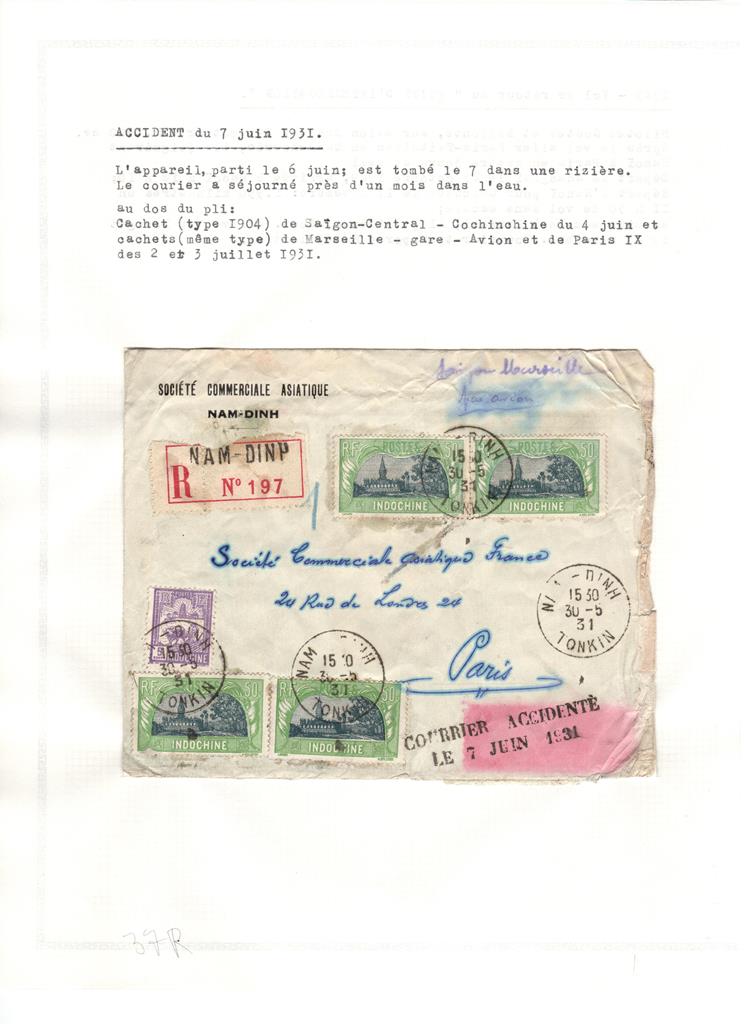 ACCIDENT du 7 juin I93I.
L'appareil, parti le 6 juin; est tombé le 7 dans une rizière.
Le courier a séjourné près d'un mois dans l'eau.
au dos du pli:
Cachet (type I904) de Saïgon-Central - Cochinchine du 4 juin et
cachets(même type) de Marseille - gare - Avion et de Paris IX
des 2 et 3 juillet I93I.
SOCIÉTÉ COMMERCIALE ASIATIQUE
NAM-DINH
Saigon Marseille
par avion
NAM-DINH
R Nº 197
RF POSTES
INDOCHINE
POSTES 50
INDOCHINE
DINH
15 30
30-5
31
TONKIN
Société Commerciale Asiatique France
24 Rue de Londres 24
Paris
DINH
15 30
30-5
31
TONKIN
INDOCHINE
DINH
31
TONKIN
NAM DINH
31
TONKIN
RF 50
INDOCHINE
RF 50
INDOCHINE
COURRIER ACCIDENTÉ
LE 7 JUIN 1931
37R